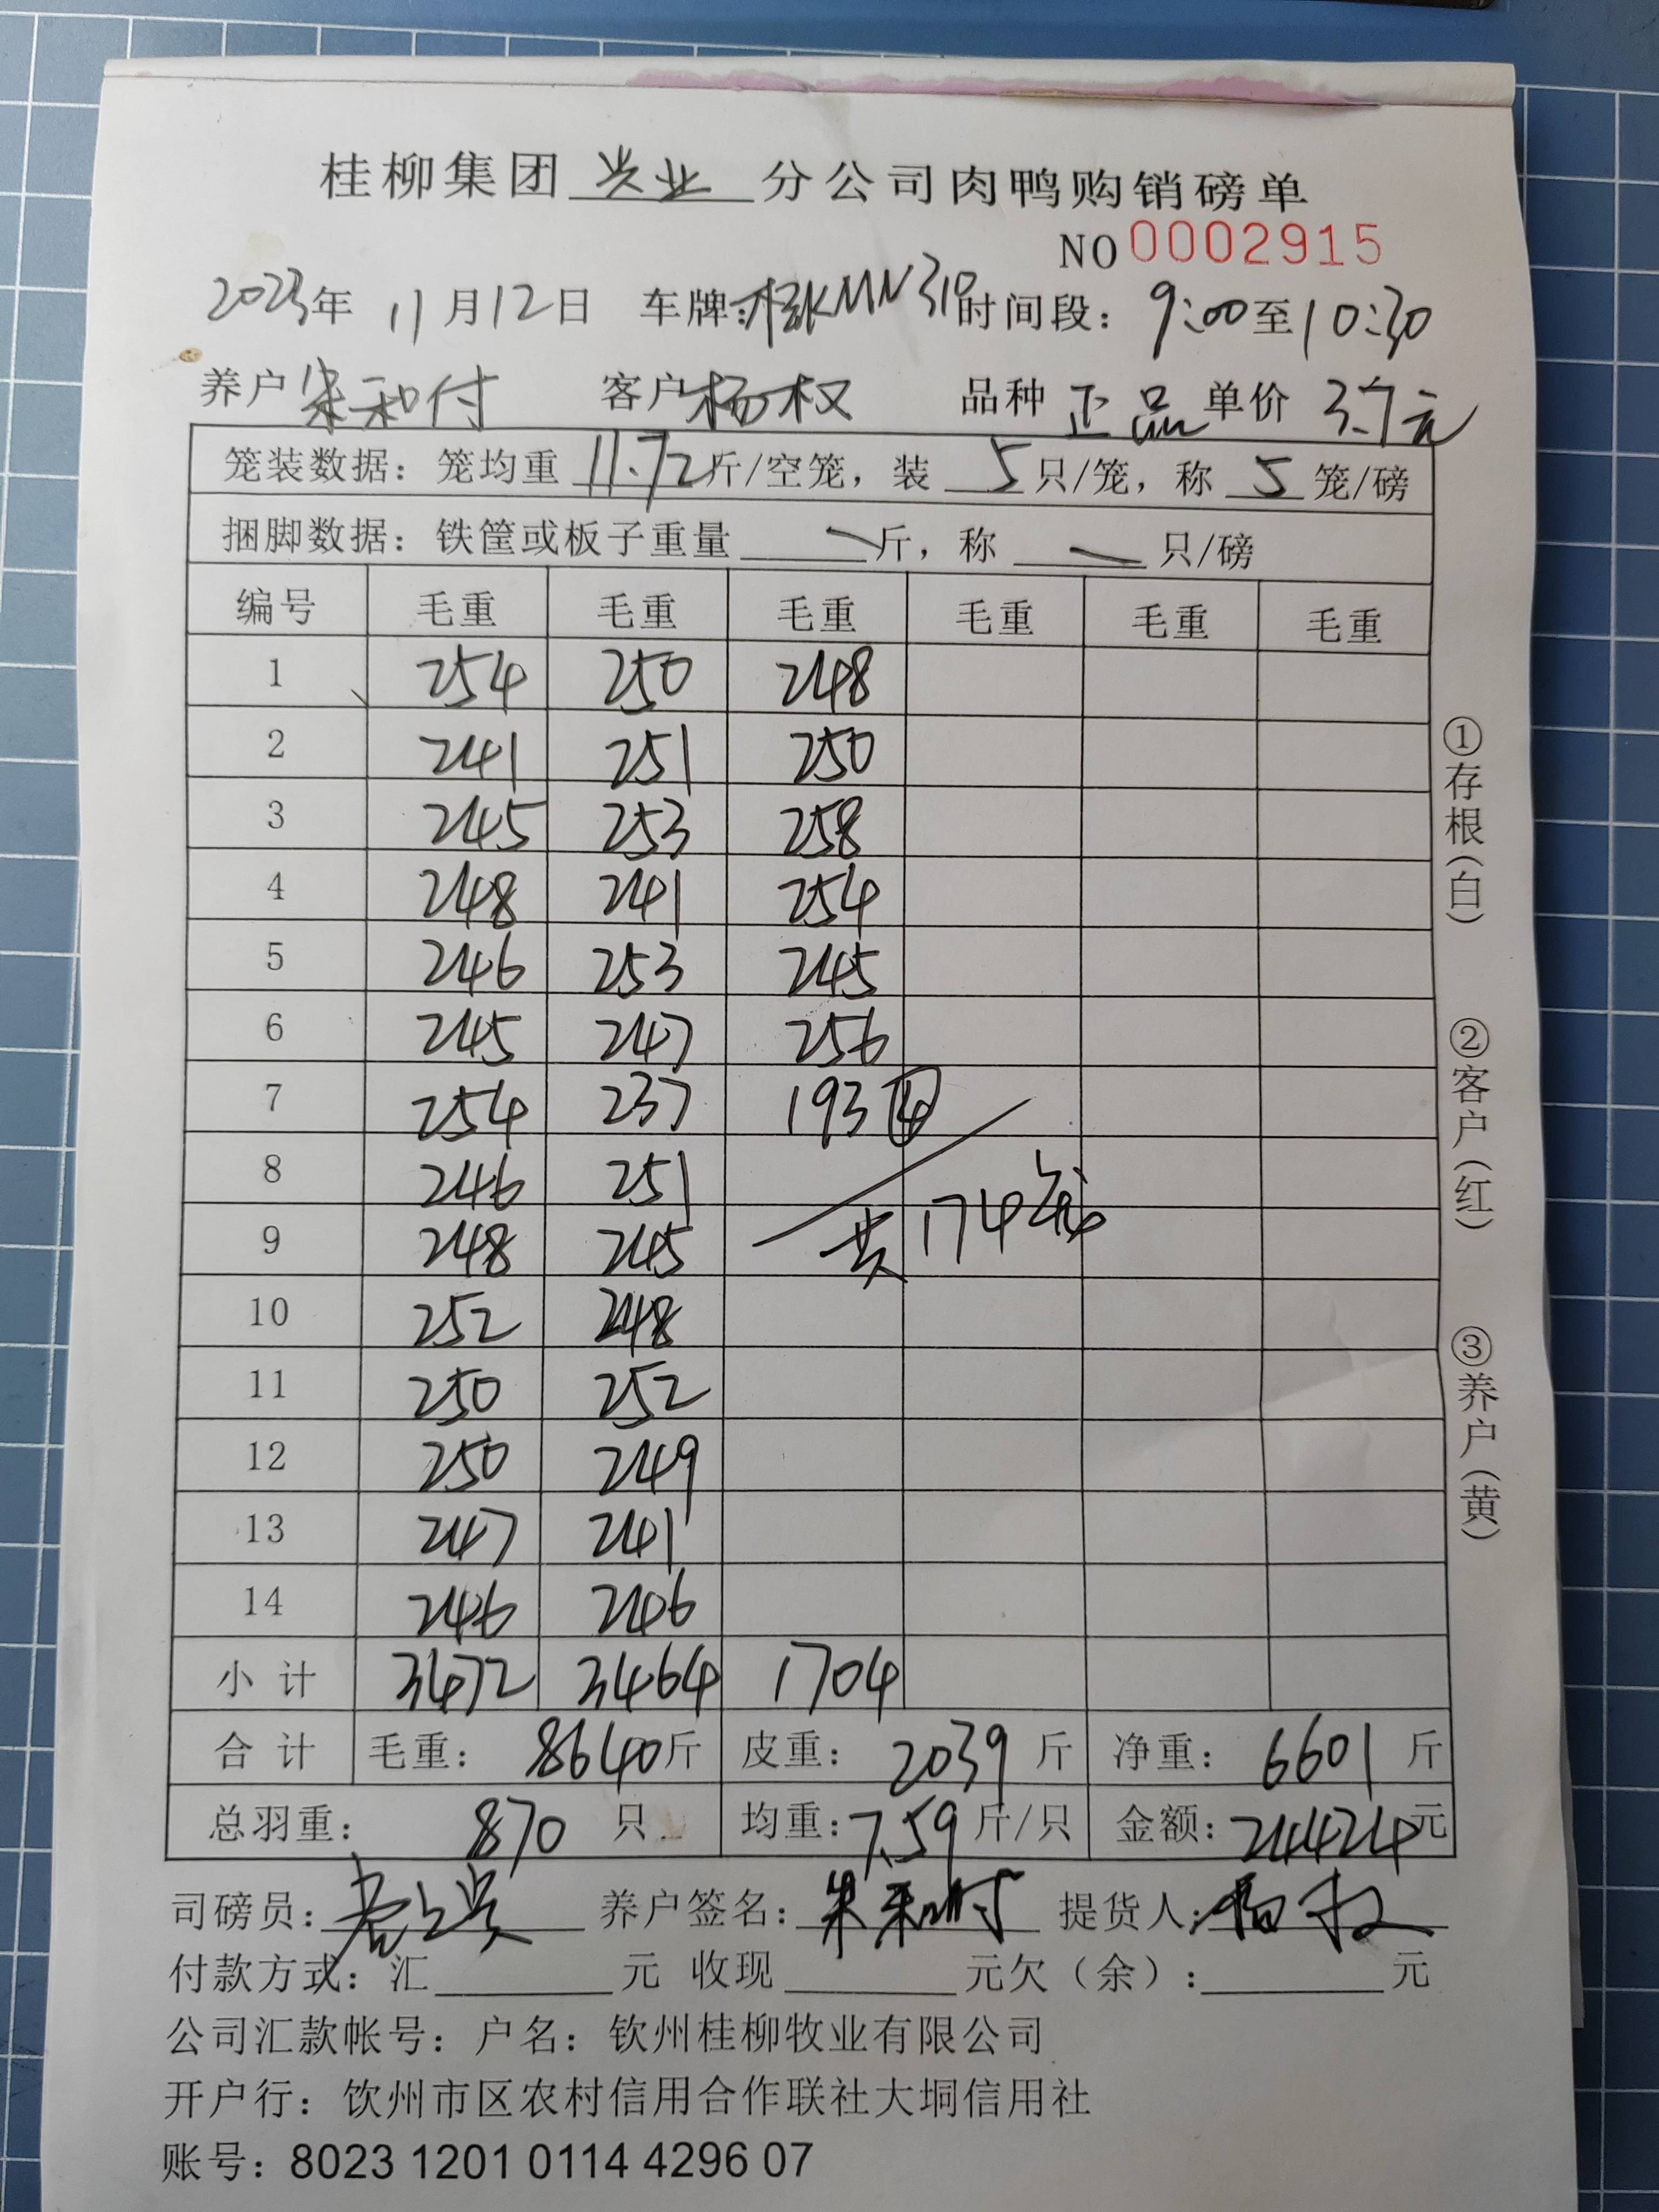 桂柳集团 兴业 分公司肉鸭购销磅单
NO 0002915
2023年 11月12日 车牌:桂KMN310 时间段: 9:00至10:30
养户 朱和付 客户 杨权 品种 正品 单价 3.7元
笼装数据: 笼均重 11.72斤/空笼, 装 5 只/笼, 称 5 笼/磅
捆脚数据: 铁筐或板子重量 — 斤, 称 — 只/磅
编号 毛重 毛重 毛重 毛重 毛重 毛重
1 254 250 248
2 241 251 250
3 245 253 258
4 248 241 254
5 246 253 245
6 245 247 256
7 254 237 193 ④
8 246 251
9 248 245 共174笼
10 252 248
11 250 252
12 250 249
13 247 241
14 246 246
小计 3472 3464 1704
合计 毛重: 8640斤 皮重: 2039 斤 净重: 6601 斤
总羽重: 870 只 均重: 7.59 斤/只 金额: 24424元
司磅员: 养户签名: 朱和付 提货人: 杨权
付款方式: 汇 元 收现 元欠(余): 元
公司汇款帐号: 户名: 钦州桂柳牧业有限公司
开户行: 钦州市区农村信用合作联社大垌信用社
账号: 8023 1201 0114 4296 07
①存根(白)
②客户(红)
③养户(黄)